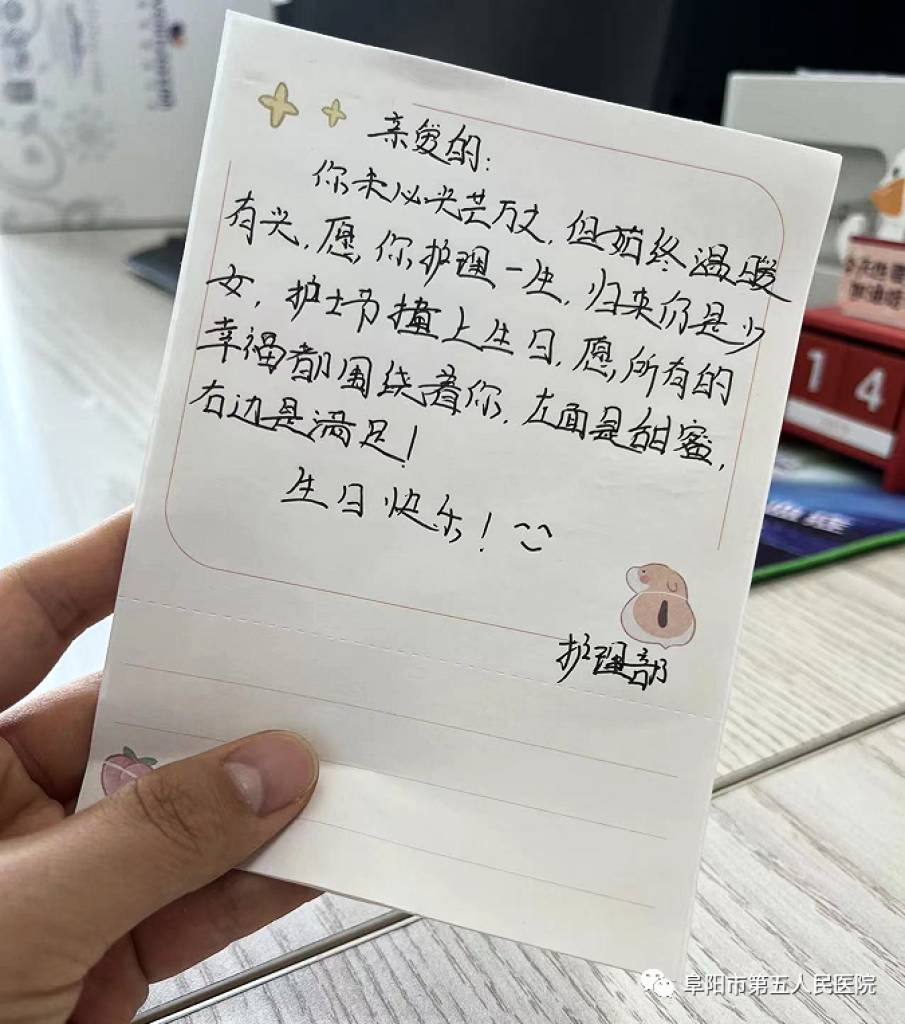 亲爱的:
你未必光芒万丈,但始终温暖
有光,愿,你护理一生,归来仍是少
女,护士节撞上生日,愿,所有的
幸福都围绕着你,左面是甜蜜,
右边是满足!
生日快乐!
护理部
1 4
阜阳市第五人民医院